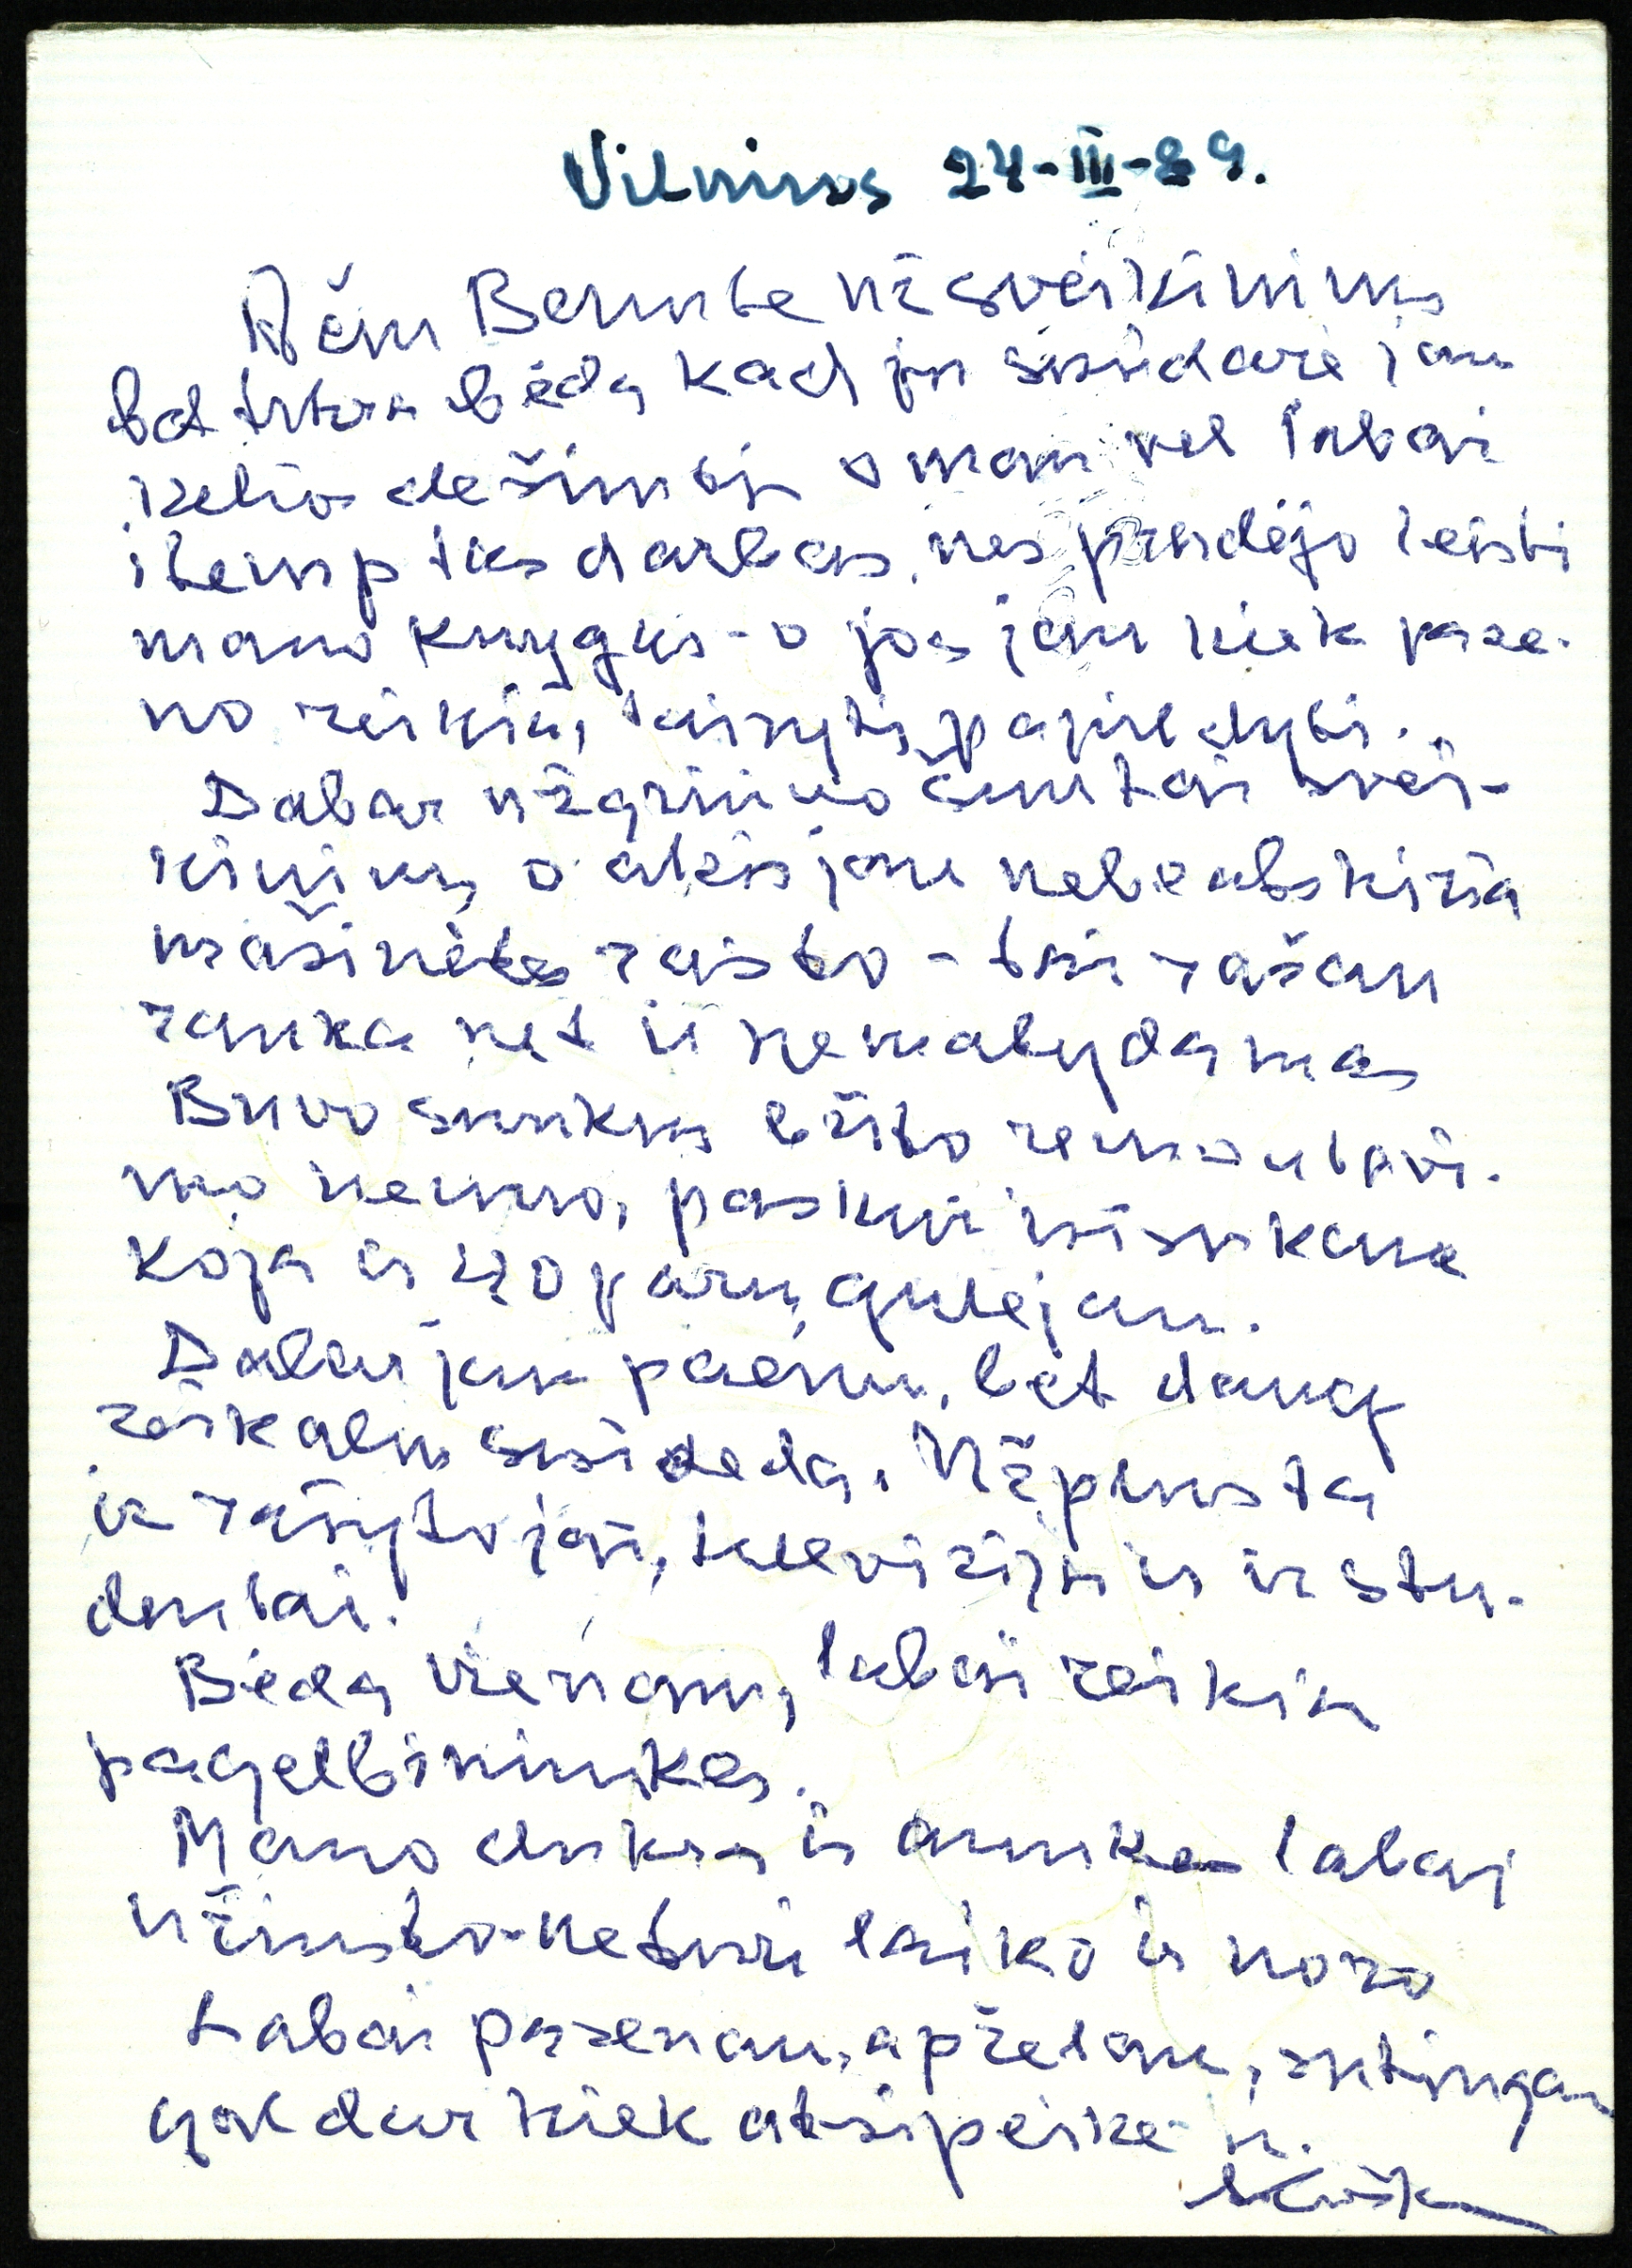 Vilnius 24-III-89.
Ačiu Bernute už sveikinimus
bet tikra bėda kad jų susidarė jau
kelios dešimtys o man vel labai
itemptas darbas, nes pradėjo leisti
mano knygas - o jos jau kiek pase-
no reikia, taisyti, papildyti.
Dabar užgriuvo šimtai svei-
kinimų, o akis jau nebeatskiria
mašinėlės rašto - tai rašau
ranka net ir nematydamas
Buvo sunkus būto remontavi-
mo metas, paskui išsisukau
koja ir 40 parų gulėjau.
Dabar jau paeinu, bet daug
reikalų susideda. Užpuola
ir rašytojai, televizija ir ir stu-
dentai.
Bėda vienam, labai reikia
pagelbininkas.
Mano dukra ir anukas labai
užimsta - neturi laiko ir noro
Labai pasenau, apželau, sutingau
gal dar kiek atsipeikėsiu.